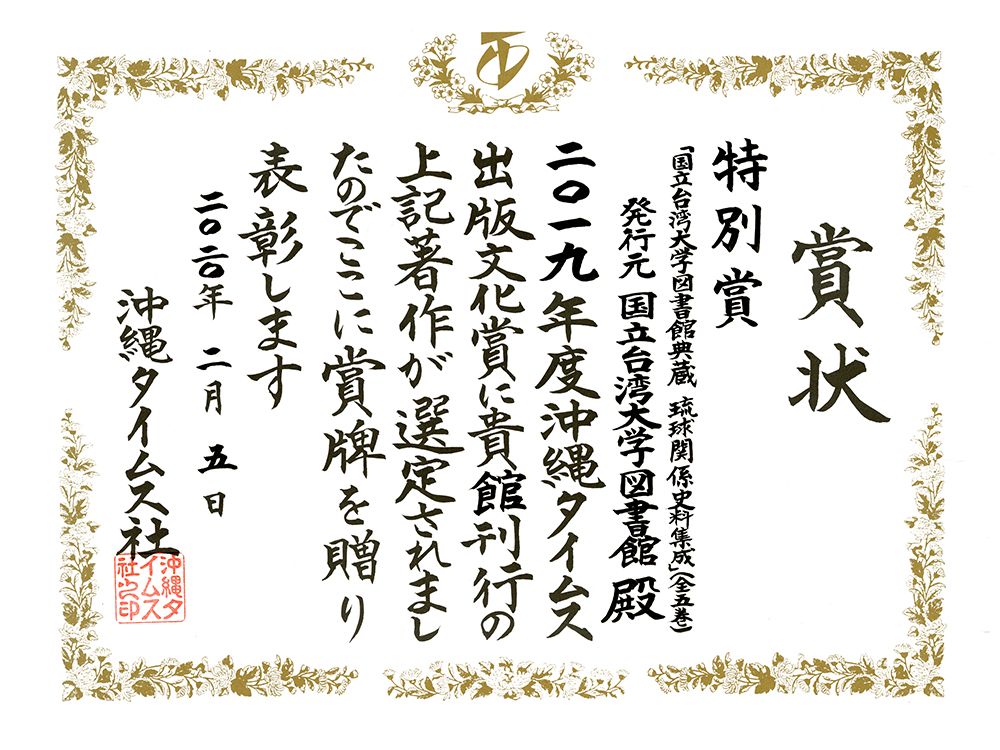 賞状
特別賞
「国立台湾大学図書館典蔵 琉球関係史料集成」(全五巻)
発行元 国立台湾大学図書館 殿
二〇一九年度沖縄タイムス
出版文化賞に貴館刊行の
上記著作が選定されまし
たのでここに賞牌を贈り
表彰します
二〇二〇年 二月 五日
沖縄タイムス社
沖縄タ
イムス
社之印